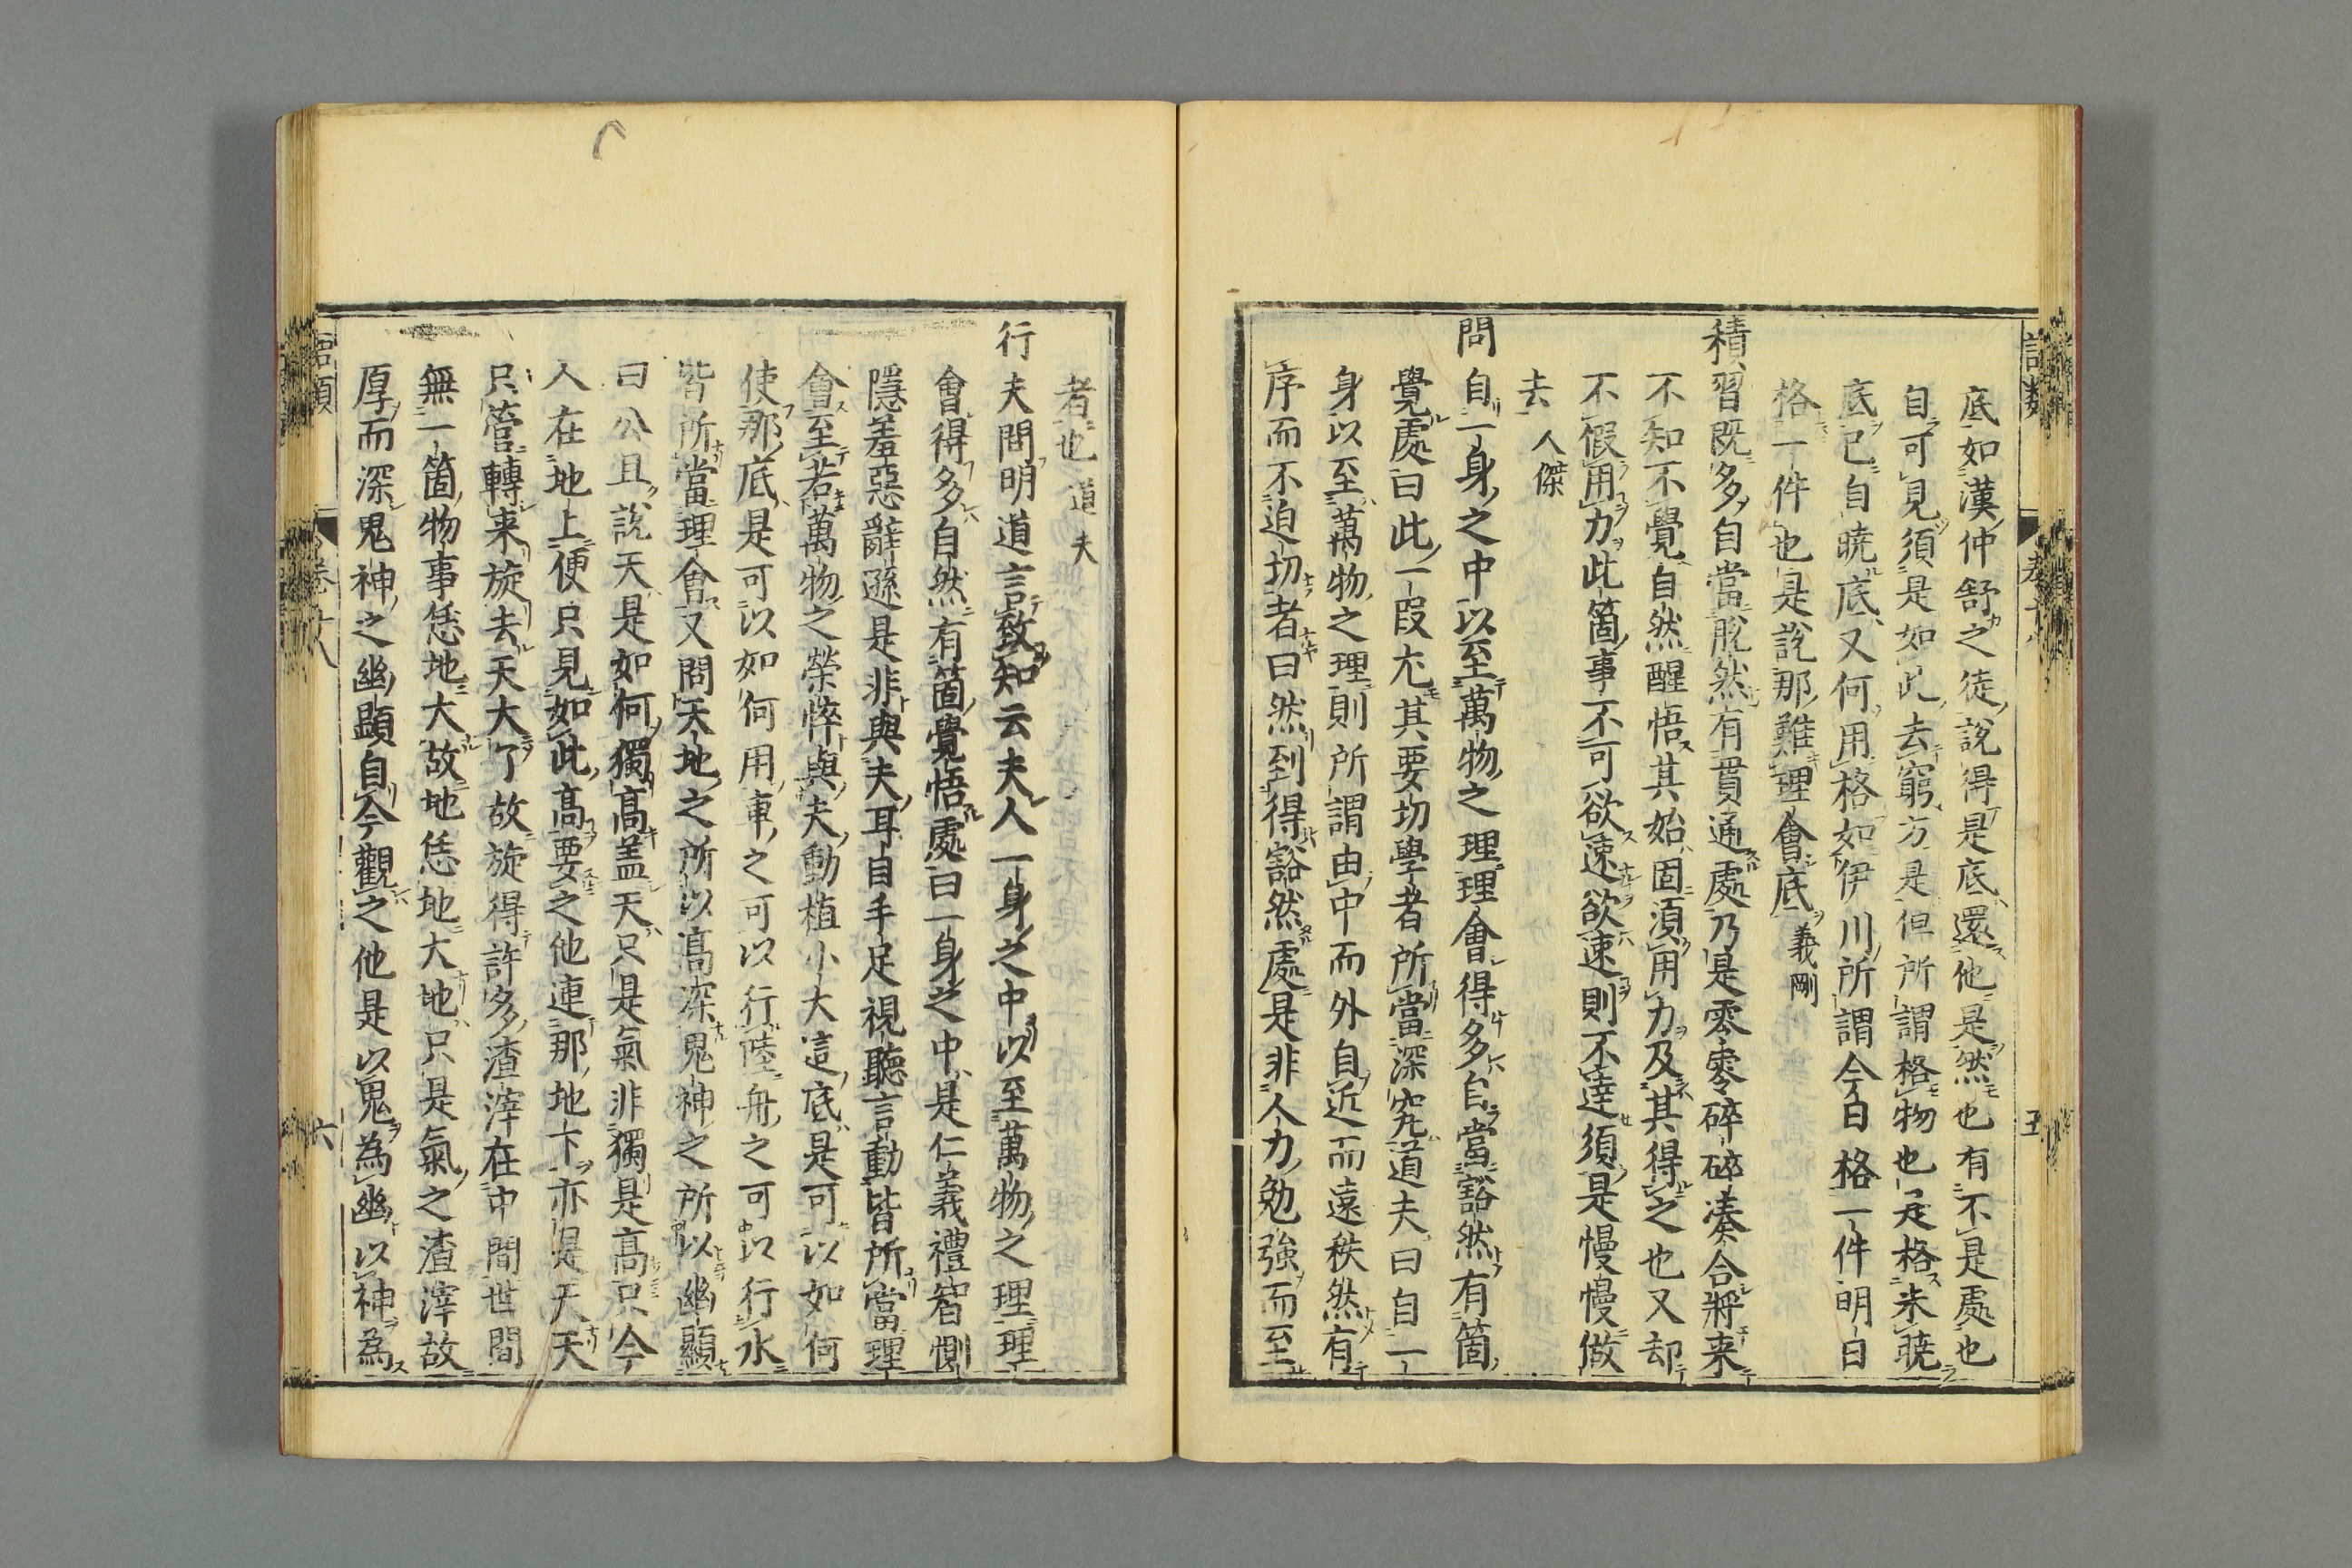 語類 卷十八 五
底如漢仲舒之徒說得是底還他是然也有不是處也
自可見須是如此去窮方是但所謂格物也是格未曉
底已自曉底又何用格如伊川所謂今日格一件明日
格一件也是說那難理會底義剛
積習既多自當脫然有貫通處乃是零零碎碎湊合將来
不知不覺自然醒悟其始固須用力及其得之也又却
不假用力此箇事不可欲速欲速則不達須是慢慢做
去人傑
問自一身之中以至萬物之理理會得多自當豁然有箇
覺處曰此一段尤其要切學者所當深究道夫曰自一
身以至萬物之理則所謂由中而外自近而遠秩然有
序而不迫切者曰然到得豁然處是非人力勉強而至
者也道夫
行夫問明道言致知云夫人一身之中以至萬物之理理
會得多自然有箇覺悟處曰一身之中是仁義禮智惻
隱羞惡辭遜是非與夫耳目手足視聽言動皆所當理
會至若萬物之榮悴與夫動植小大這底是可以如何
使那底是可以如何用車之可以行陸舟之可以行水
皆所當理會又問天地之所以高深鬼神之所以幽顯
曰公且說天是如何獨高盖天只是氣非獨是高只今
人在地上便只見如此高要之他連那地下亦是天天
只管轉来旋去天大了故旋得許多渣滓在中間世間
無一箇物事恁地大故地恁地大地只是氣之渣滓故
厚而深鬼神之幽顯自今觀之他是以鬼為幽以神為
語類 卷十八 六